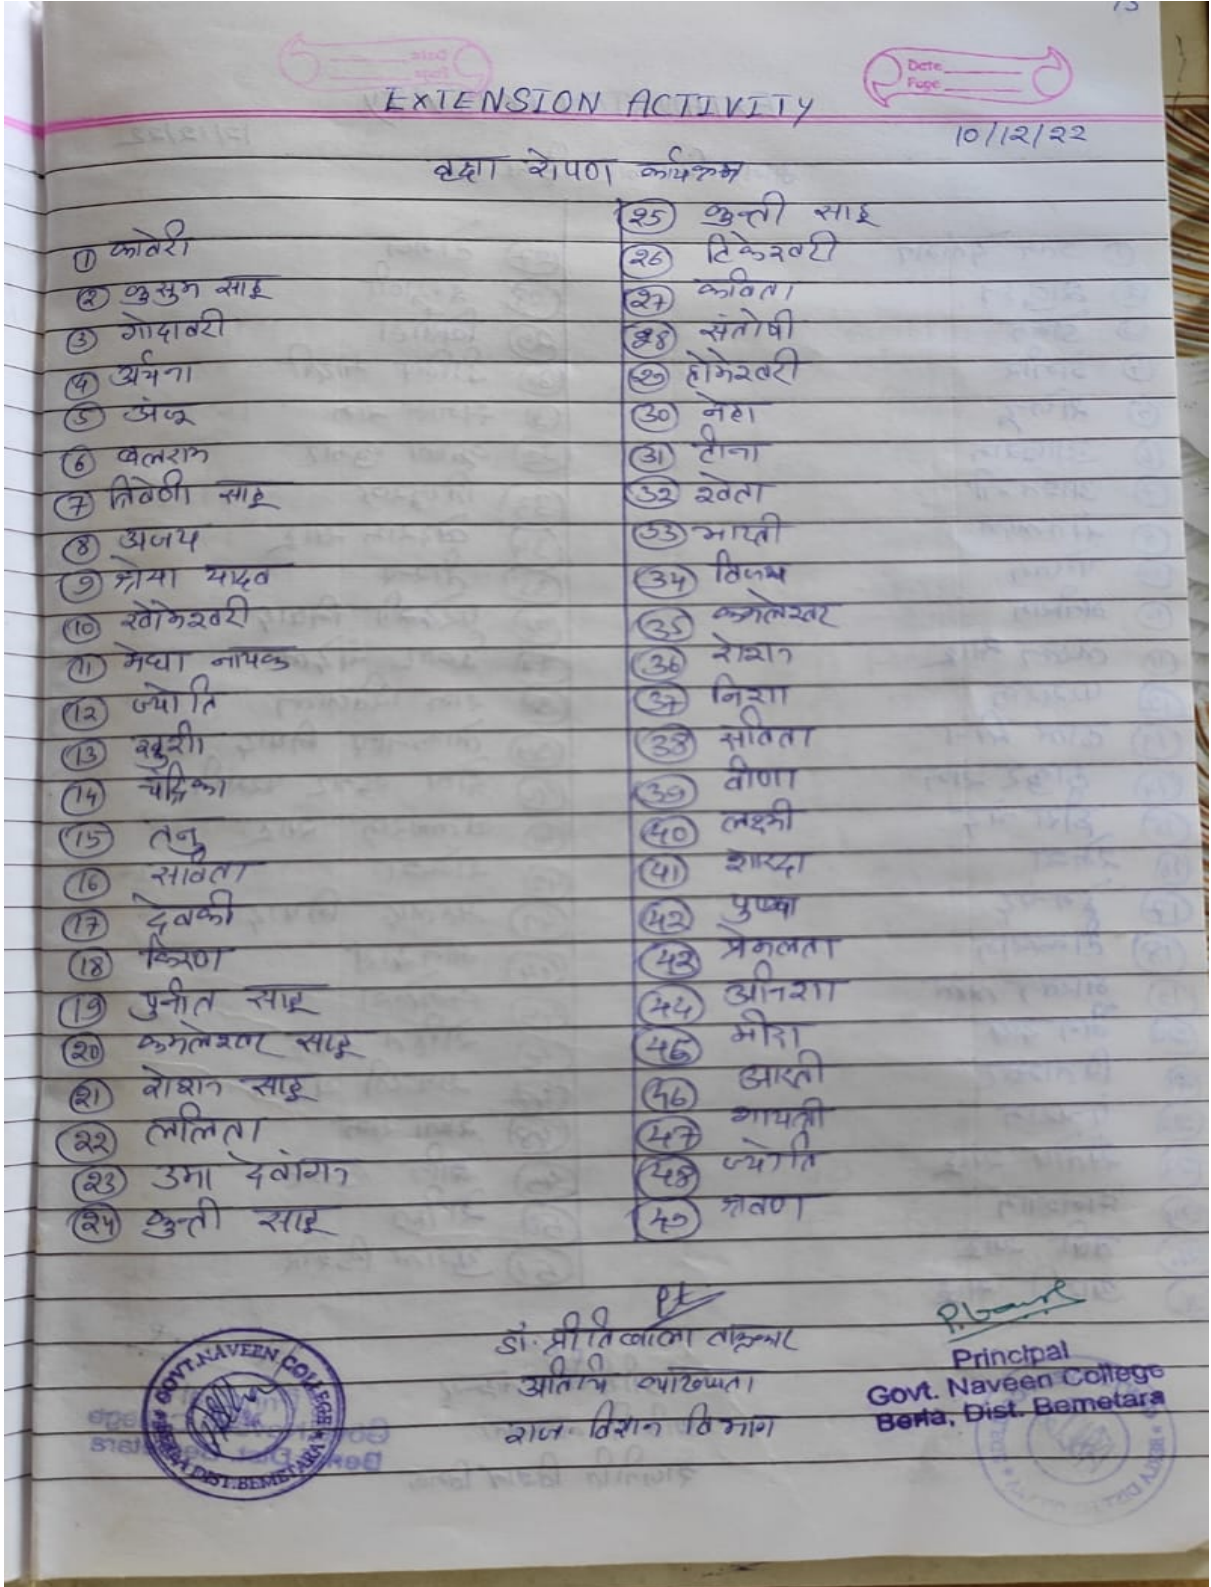 Date
Page
EXTENSION ACTIVITY
10/12/22
वृक्षा रोपण कार्यक्रम
① कावेरी
② कुसुम साहू
③ गोदावरी
④ अर्चना
⑤ अंजू
⑥ बलराम
⑦ त्रिवेणी साहू
⑧ अजय
⑨ श्रेया यादव
⑩ खेमेश्वरी
⑪ मेघा नायक
⑫ ज्योति
⑬ खुशी
⑭ चंद्रिका
⑮ तनु
⑯ सविता
⑰ देवकी
⑱ किरण
⑲ पुनीत साहू
⑳ कमलेश्वर साहू
㉑ रोशन साहू
㉒ ललिता
㉓ उमा देवांगन
㉔ कुन्ती साहू
㉕ कुन्ती साहू
㉖ टिकेश्वरी
㉗ कविता
㉘ संतोषी
㉙ होमेश्वरी
㉚ नेहा
㉛ टीना
㉜ श्वेता
㉝ भारती
㉞ विजय
㉟ कमलेश्वर
㊱ रोशन
㊲ निशा
㊳ सविता
㊴ वीणा
㊵ लक्ष्मी
㊶ शारदा
㊷ पुष्पा
㊸ प्रेमलता
㊹ अनिशा
㊺ मीरा
㊻ आरती
㊼ गायत्री
㊽ ज्योति
㊾ श्रवण
डॉ. प्रीतिबाला
अतिथि व्याख्याता
राज. विज्ञान विभाग
Principal
Govt. Naveen College
Berla, Dist. Bemetara
GOVT. NAVEEN COLLEGE BERLA DIST. BEMETARA